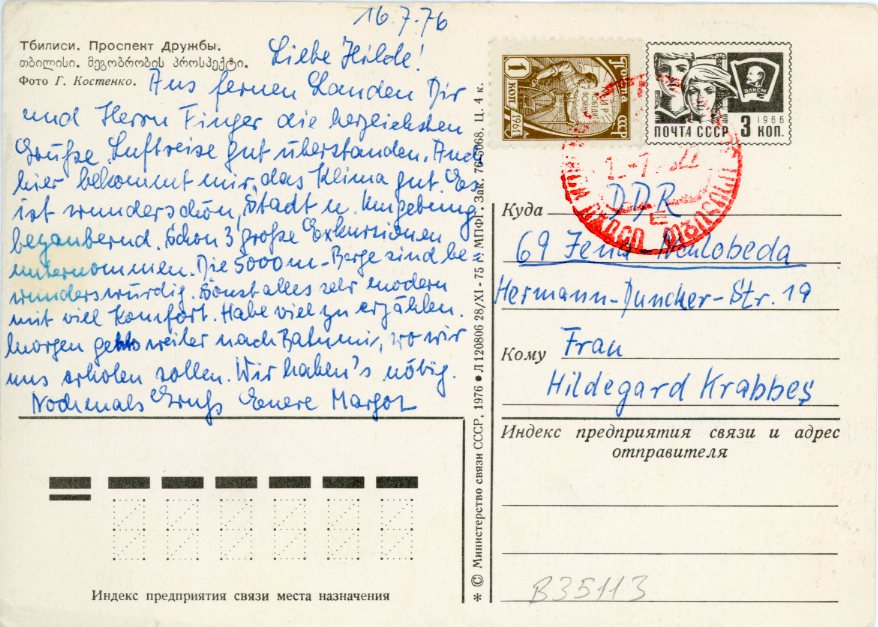 16.7.76
Тбилиси. Проспект Дружбы.
თბილისი. მეგობრობის პროსპექტი.
Фото Г. Костенко.
Liebe Hilde!
Aus fernen Landen Dir
und Herrn Finger die herzlichsten
Grüße. Luftreise gut überstanden. Auch
hier bekommt mir das Klima gut. Es
ist wunderschön, Stadt u. Umgebung
bezaubernd. Schon 3 große Exkursionen
unternommen. Die 5000 m-Berge sind be-
wunderswürdig. Sonst alles sehr modern
mit viel Komfort. Habe viel zu erzählen.
Morgen gehts weiter nach Batumi, wo wir
uns erholen sollen. Wir haben's nötig.
Nochmals Gruß Euere Margot
Индекс предприятия связи места назначения
* © Министерство связи СССР, 1976 ● Л 120806 28/XI - 75 г. МПФГ, Зак. 76-5068. Ц. 4 к.
1 КОП
1961
Почта СССР
ВЛКСМ
1966
ПОЧТА СССР 3 КОП.
Куда DDR
69 Jena-Neulobeda
Hermann-Duncker-Str. 19
Кому Frau
Hildegard Krabbes
Индекс предприятия связи и адрес
отправителя
B35113